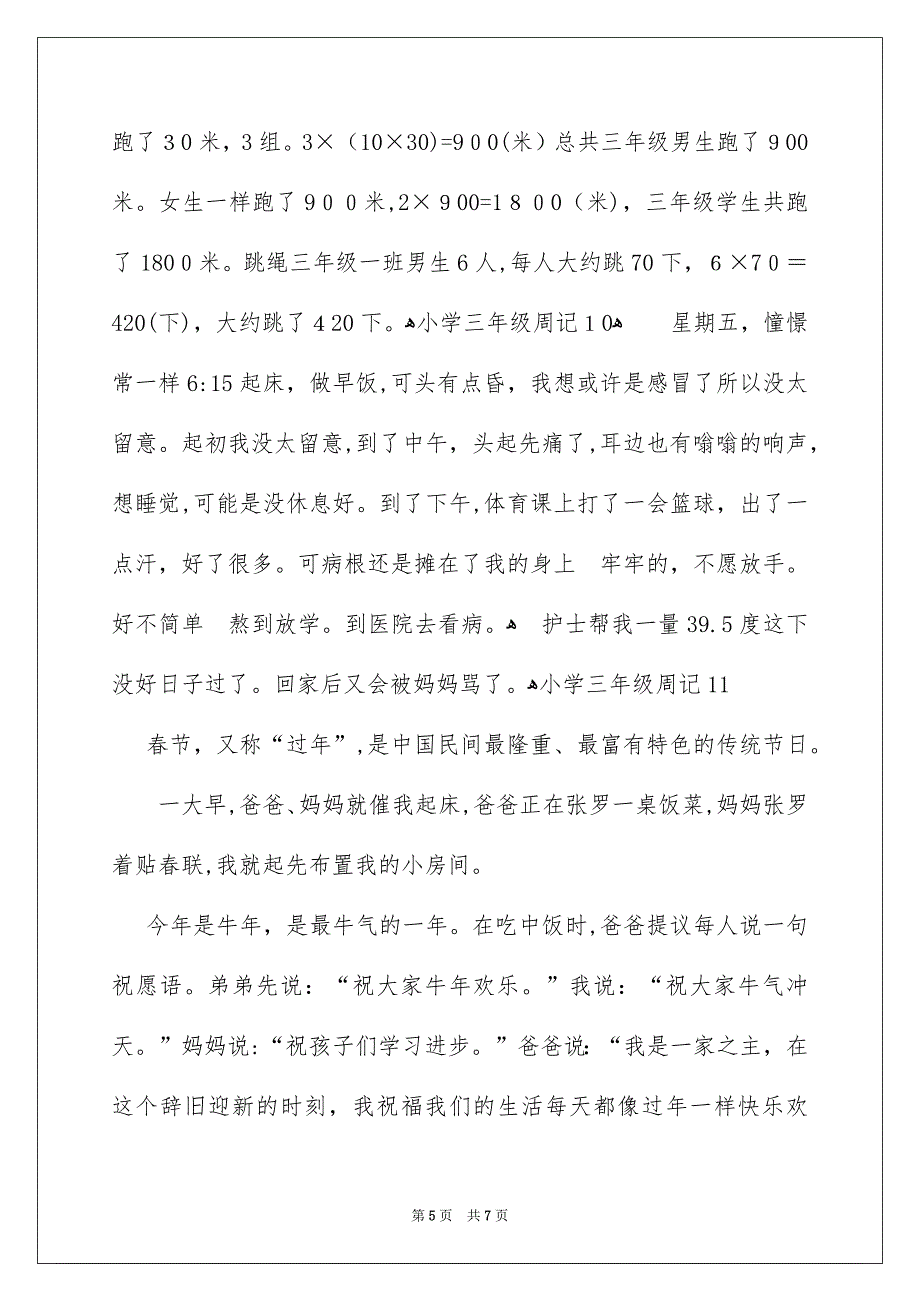 跑了30米，3组。3×（10×30)=900(米）总共三年级男生跑了900
米。女生一样跑了900米,2×900=1800（米)，三年级学生共跑
了1800米。跳绳三年级一班男生6人,每人大约跳70下，6×70＝
420(下)，大约跳了420下。ﻫ小学三年级周记10ﻫ　　星期五，憧憬
常一样6:15起床，做早饭,可头有点昏，我想或许是感冒了所以没太
留意。起初我没太留意,到了中午，头起先痛了,耳边也有嗡嗡的响声，
想睡觉,可能是没休息好。到了下午,体育课上打了一会篮球，出了一
点汗，好了很多。可病根还是摊在了我的身上　牢牢的，不愿放手。
好不简单　熬到放学。到医院去看病。ﻫ　护士帮我一量39.5度这下
没好日子过了。回家后又会被妈妈骂了。ﻫ小学三年级周记11
春节，又称“过年”,是中国民间最隆重、最富有特色的传统节日。
一大早,爸爸、妈妈就催我起床,爸爸正在张罗一桌饭菜,妈妈张罗
着贴春联,我就起先布置我的小房间。
今年是牛年，是最牛气的一年。在吃中饭时,爸爸提议每人说一句
祝愿语。弟弟先说：“祝大家牛年欢乐。”我说：“祝大家牛气冲
天。”妈妈说:“祝孩子们学习进步。”爸爸说：“我是一家之主，在
这个辞旧迎新的时刻，我祝福我们的生活每天都像过年一样快乐欢
第5页 共7页